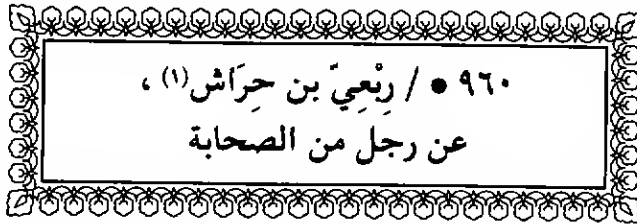 ٩٦٠ • / رِبْعِيّ بن حِرَاش(١) ،
عن رجل من الصحابة